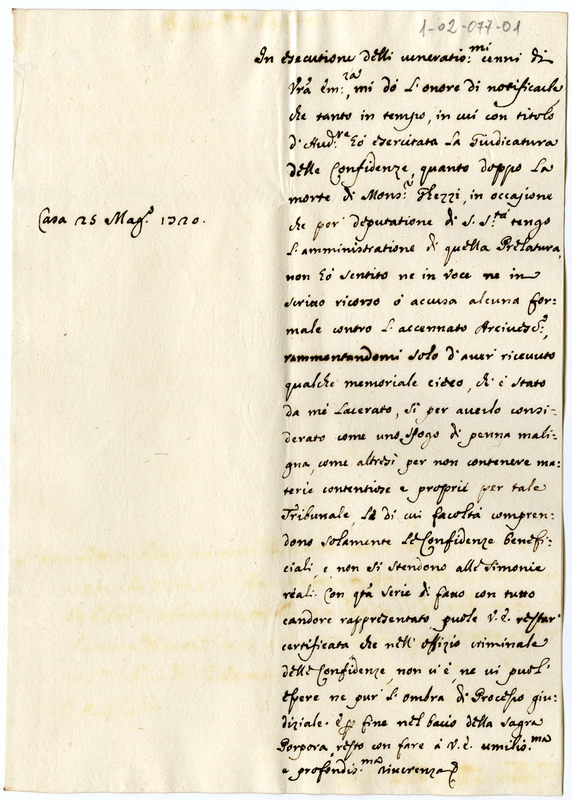 1-02-077-01
In esecutione delli veneratio:mi cenni di
Vra Em:za, mi dò l'onore di notificarle
che tanto in tempo, in cui con titolo
d'Aud.re hò esercitata la Giudicatura
delle Confidenze, quanto doppo la
morte di Mons:r Ghezzi, in occasione
che per deputatione di S. S.tà tengo
l'amministratione di quella Prelatura,
non hò sentito ne in voce ne in
scritto ricorso ò accusa alcuna for:
male contro l'accennato Arciuesc:o,
rammentandomi solo d'auer riceuuto
qualche memoriale cieco, ch'è stato
da mè lacerato, sì per auerlo consi:
derato come uno sfogo di penna mali:
gna, come altresì per non contenere ma:
terie contentiose e proprie per tale
Tribunale, le di cui facoltà compren:
dono solamente le Confidenze benefi:
ciali, e non si stendono alle simonie
reali. Con qta serie di fatto con tutto
candore rappresentato puole V.E. restar
certificata che nell'offizio criminale
delle Confidenze, non v'è, ne vi puol'
essere ne pur l'ombra di Processo giu:
diziale. E p fine nel bacio della Sagra
Porpora, resto con fare à V.E. umilis:ma
e profondis:ma riuerenza
Casa 25 Mag.o 1720.